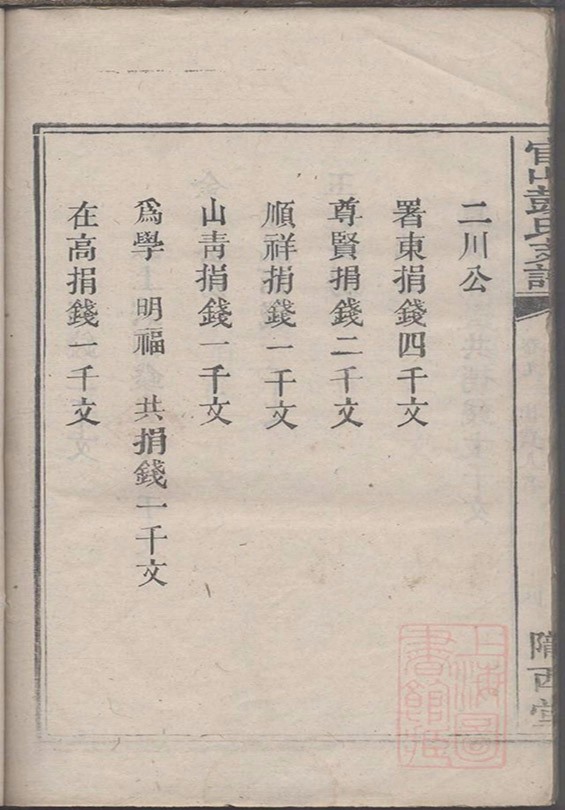 官山彭氏支譜
隴西堂
二川公
署東捐錢四千文
尊賢捐錢二千文
順祥捐錢一千文
山青捐錢一千文
為學 明福 共捐錢一千文
在高捐錢一千文
上海圖書館藏